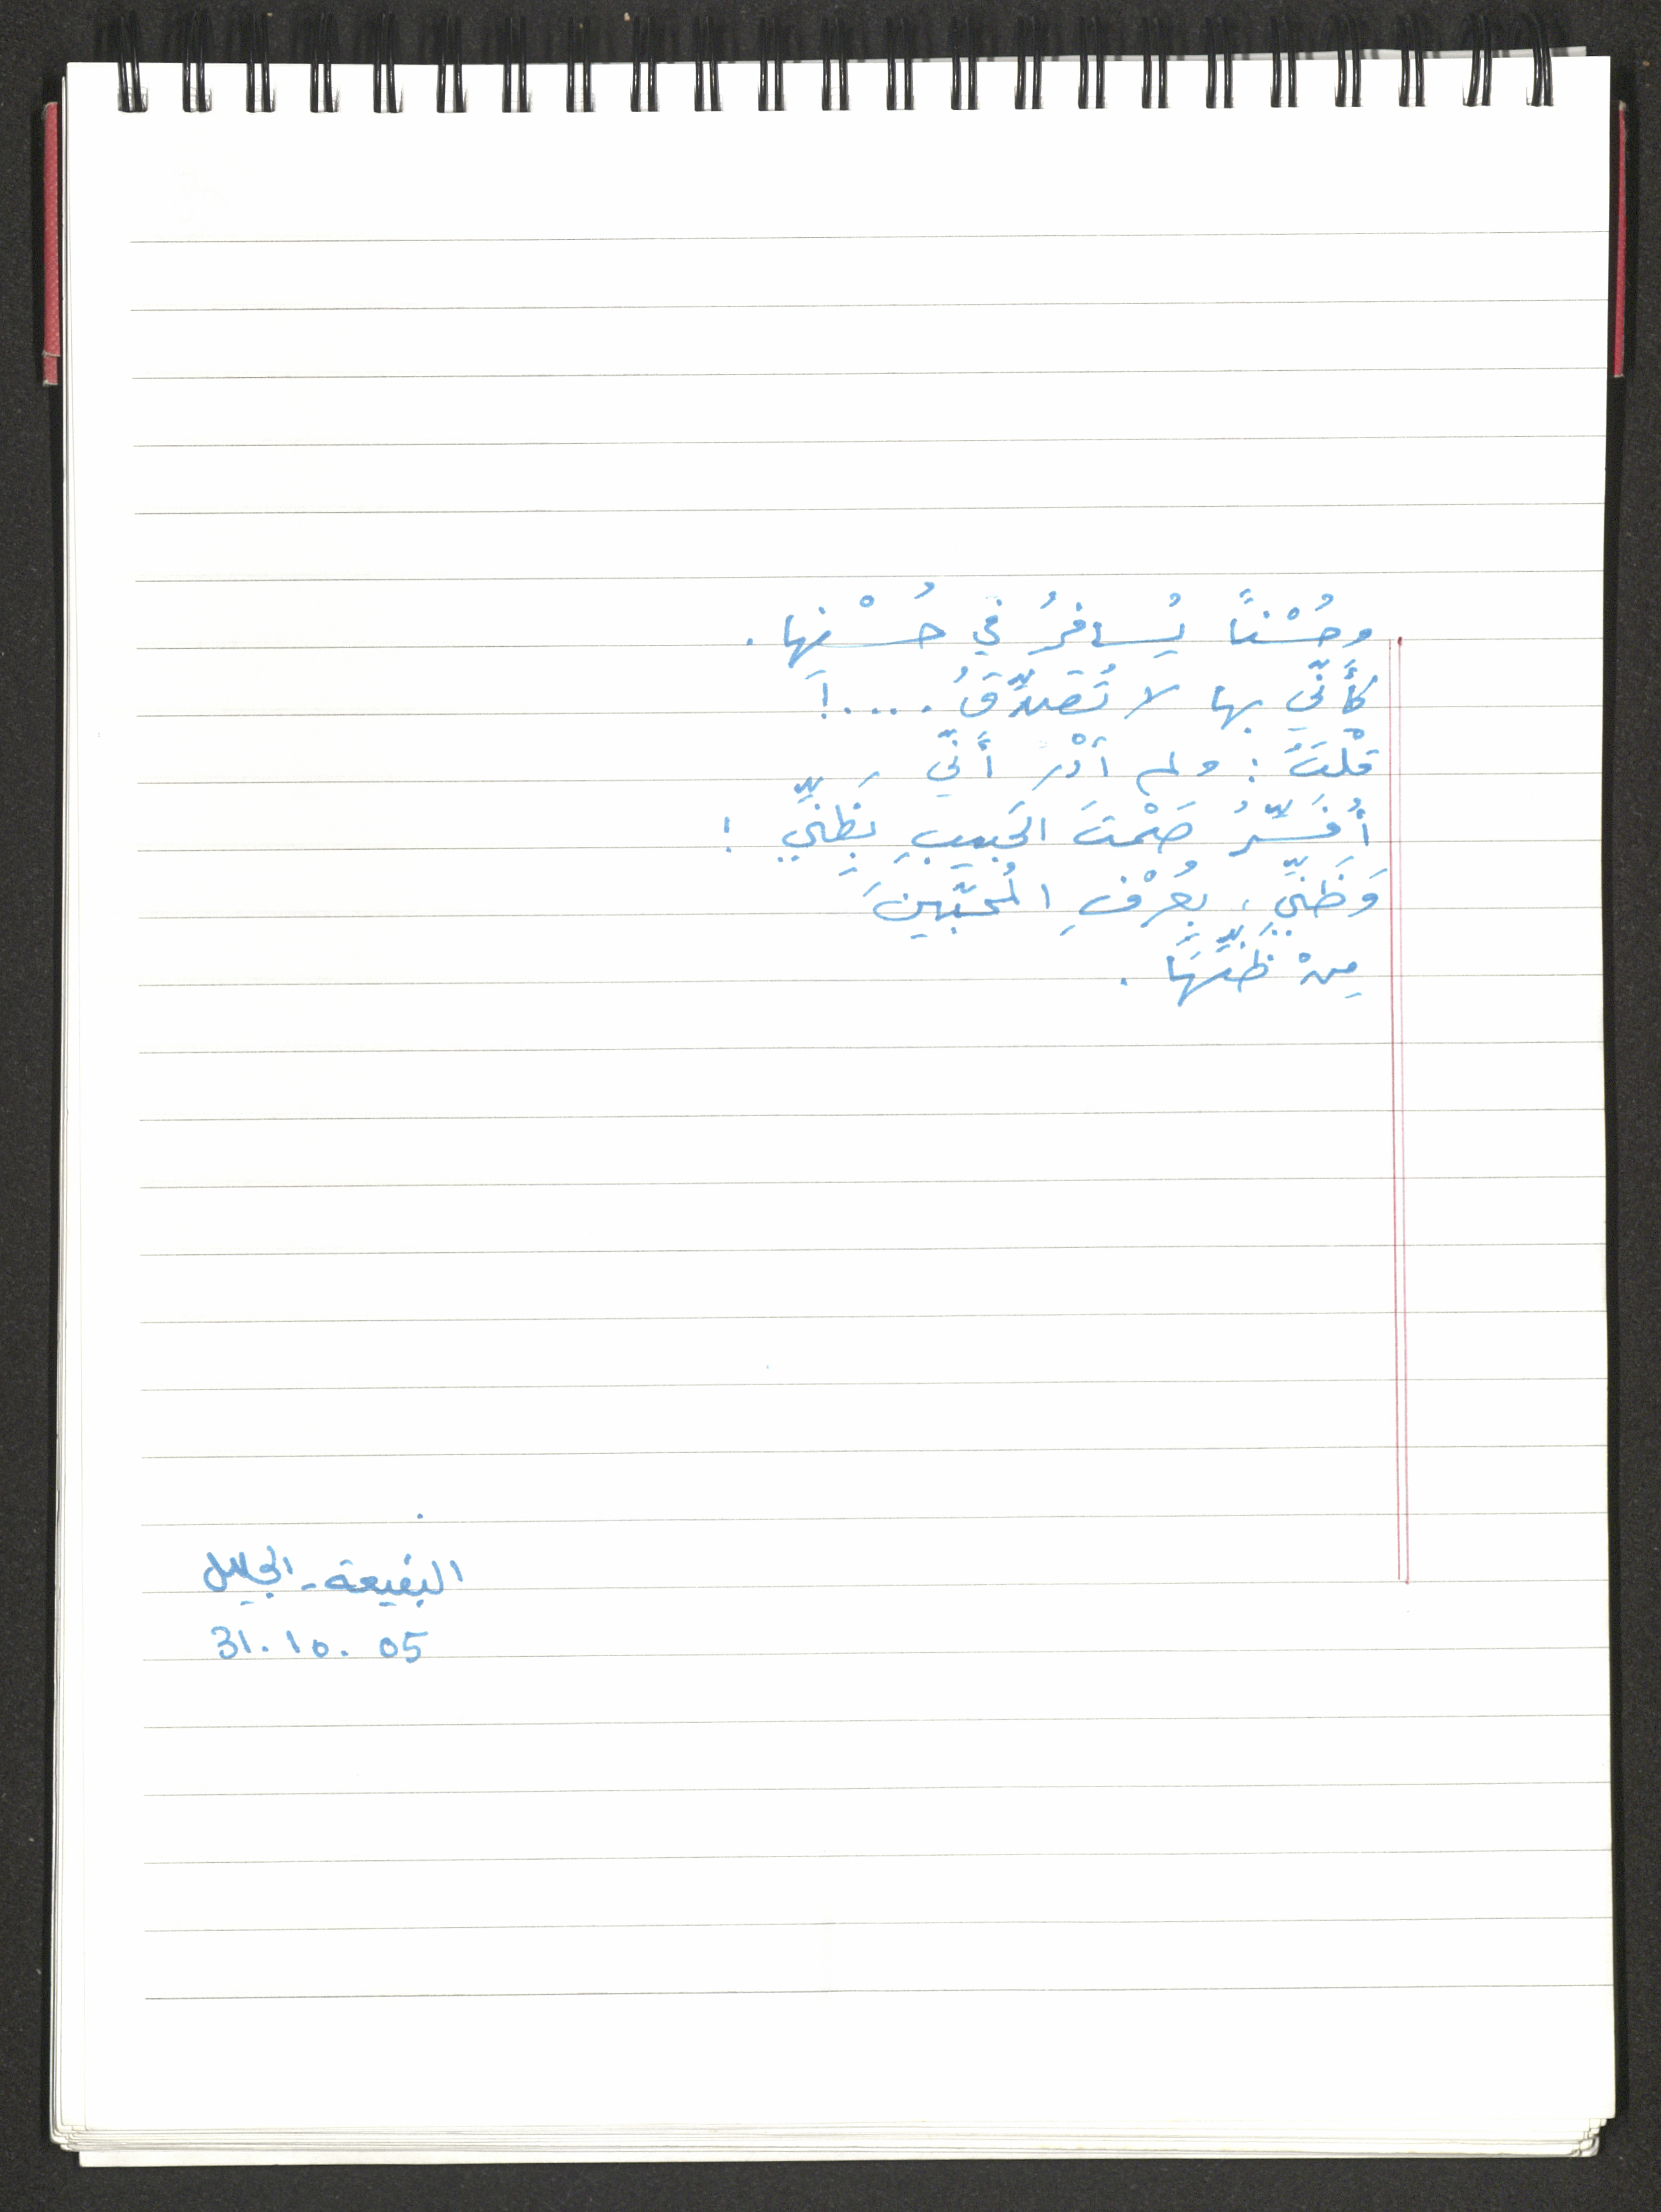 وحُسْناً يُسافرُ في حُسْنِها .
كأَنّي بها لا تُصَدِّقَُ ....!
قلْتَُ : ولم أَدْرِ أَنّي
أُفَسِّرُ صَمْتَ الحَبيبِ بِظَنّي !
وَظَنّي ، بِعُرْفِ المُحبّينَ
مِنْ ظَنِّهَا .
البقيعة - الجليل
31.10.05